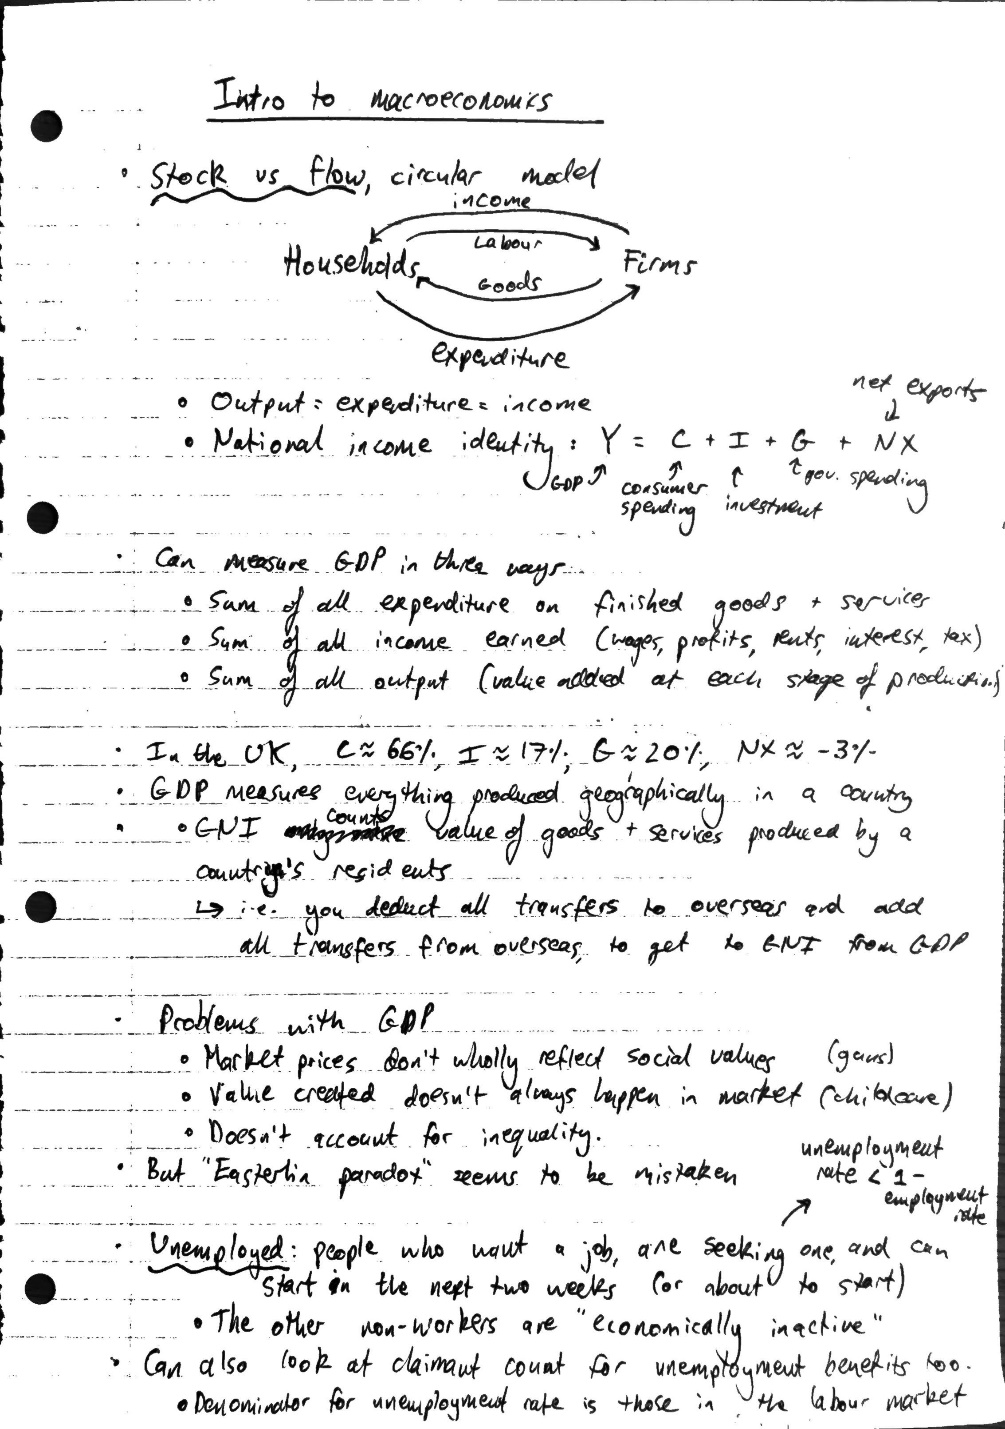 Intro to macroeconomics
• Stock vs flow, circular model
income
Labour
Households
Firms
Goods
expenditure
• Output = expenditure = income
net exports
• National income identity : Y = C + I + G + NX
GDP
consumer spending
investment
gov. spending
• Can measure GDP in three ways
• Sum of all expenditure on finished goods + services
• Sum of all income earned (wages, profits, rents, interest, tax)
• Sum of all output (value added at each stage of production)
• In the UK, C ≈ 66%, I ≈ 17%, G ≈ 20%, NX ≈ -3%
• GDP measures everything produced geographically in a country
• GNI counts value of goods + services produced by a
country's residents
↳ i.e. you deduct all transfers to overseas and add
all transfers from overseas, to get to GNI from GDP
• Problems with GDP
• Market prices don't wholly reflect social values (guns)
• Value created doesn't always happen in market (childcare)
• Doesn't account for inequality.
• But "Easterlin paradox" seems to be mistaken
unemployment
rate < 1 -
employment
rate
• Unemployed: people who want a job, are seeking one, and can
start in the next two weeks (or about to start)
• The other non-workers are "economically inactive"
• Can also look at claimant count for unemployment benefits too.
• Denominator for unemployment rate is those in the labour market